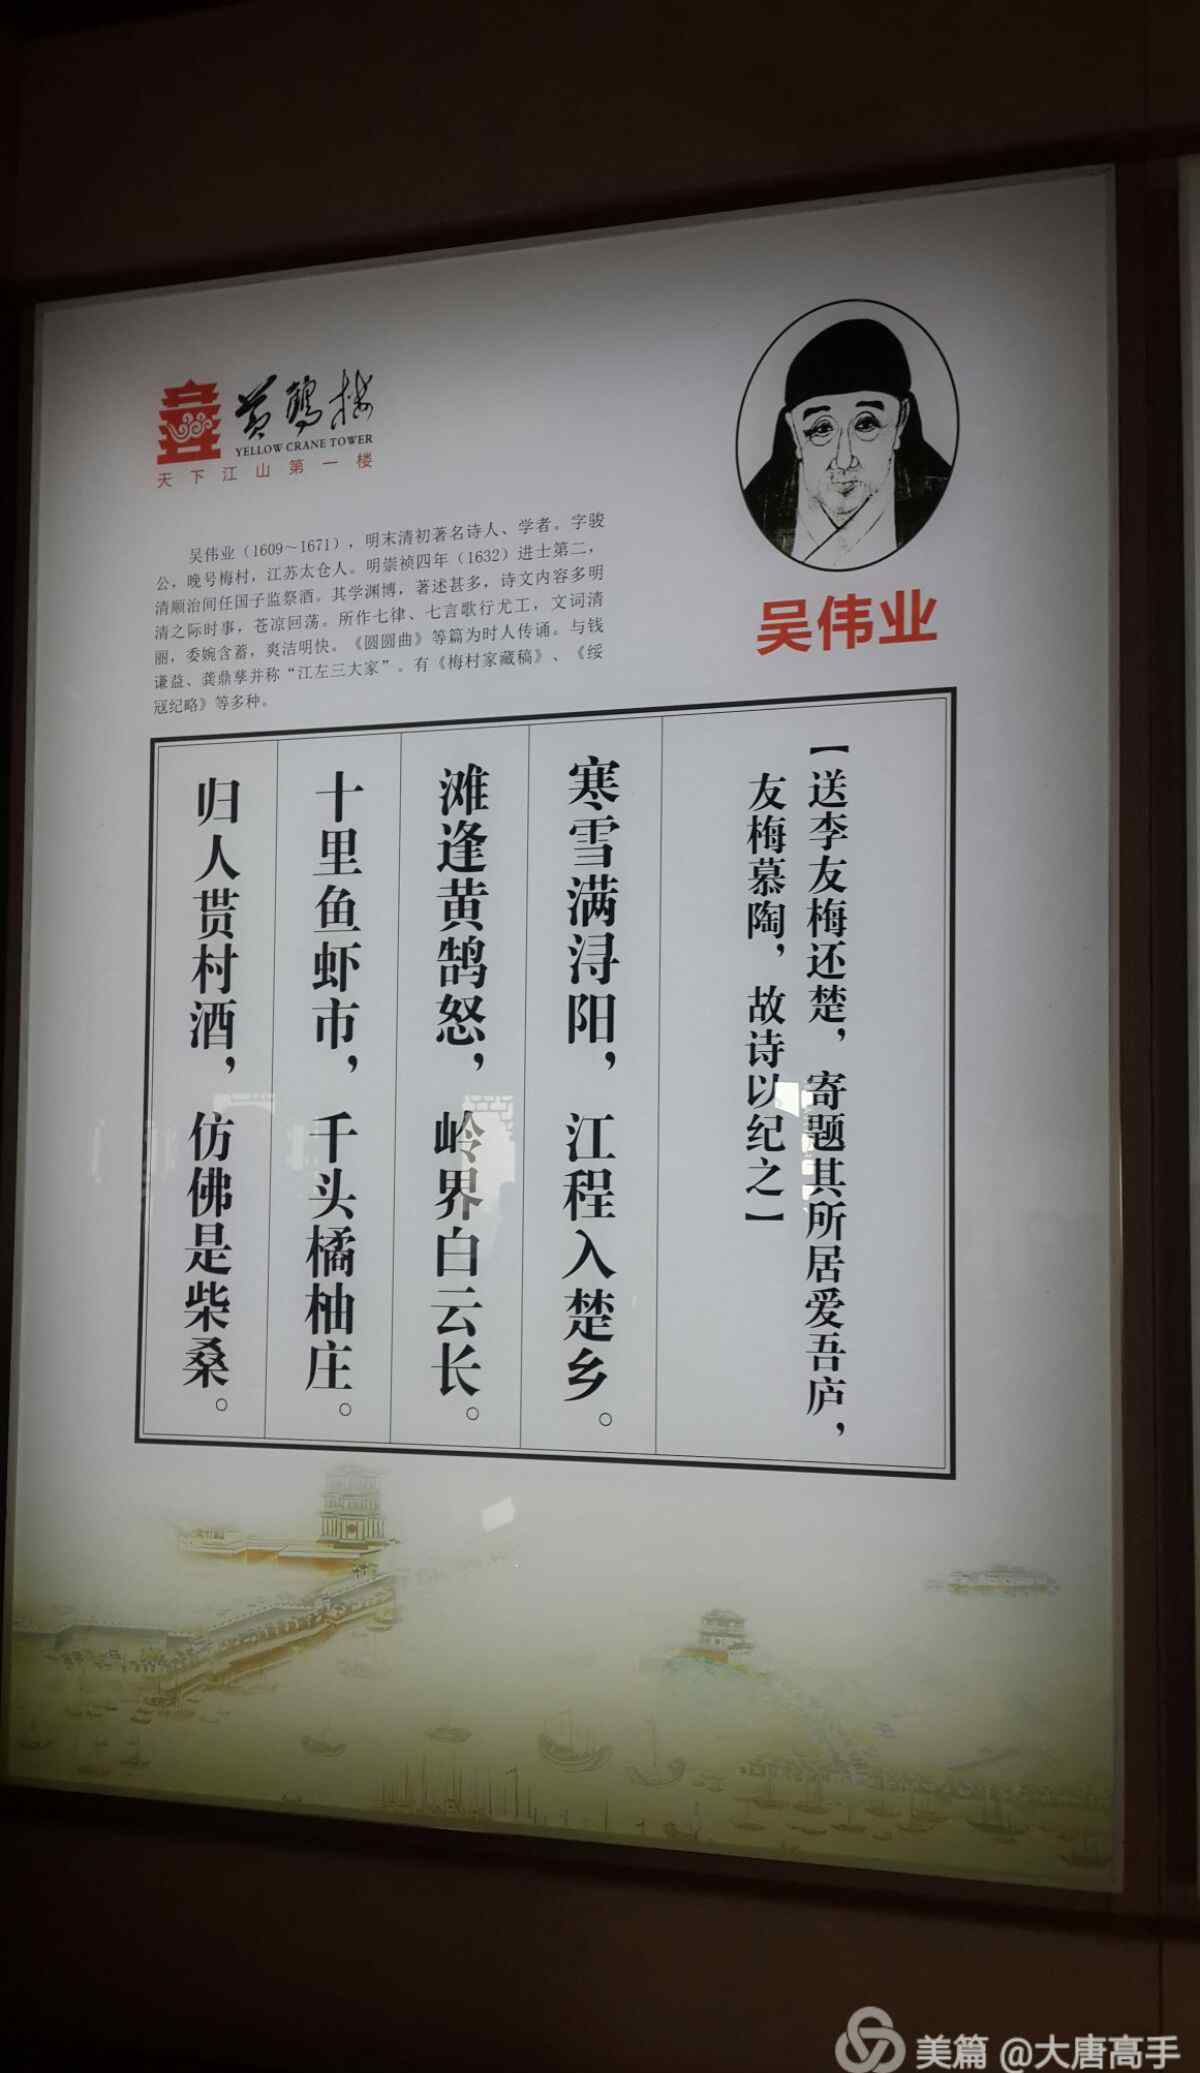 黄鹤楼
YELLOW CRANE TOWER
天下江山第一楼
吴伟业（1609～1671），明末清初著名诗人、学者。字骏
公，晚号梅村，江苏太仓人。明崇祯四年（1632）进士第二，
清顺治间任国子监祭酒。其学渊博，著述甚多，诗文内容多明
清之际时事，苍凉回荡。所作七律、七言歌行尤工，文词清
丽，委婉含蓄，爽洁明快。《圆圆曲》等篇为时人传诵。与钱
谦益、龚鼎孳并称“江左三大家”。有《梅村家藏稿》、《绥
寇纪略》等多种。
吴伟业
【送李友梅还楚，寄题其所居爱吾庐，
友梅慕陶，故诗以纪之】
寒雪满浔阳，江程入楚乡。
滩逢黄鹄怒，岭界白云长。
十里鱼虾市，千头橘柚庄。
归人贳村酒，仿佛是柴桑。
美篇 @大唐高手